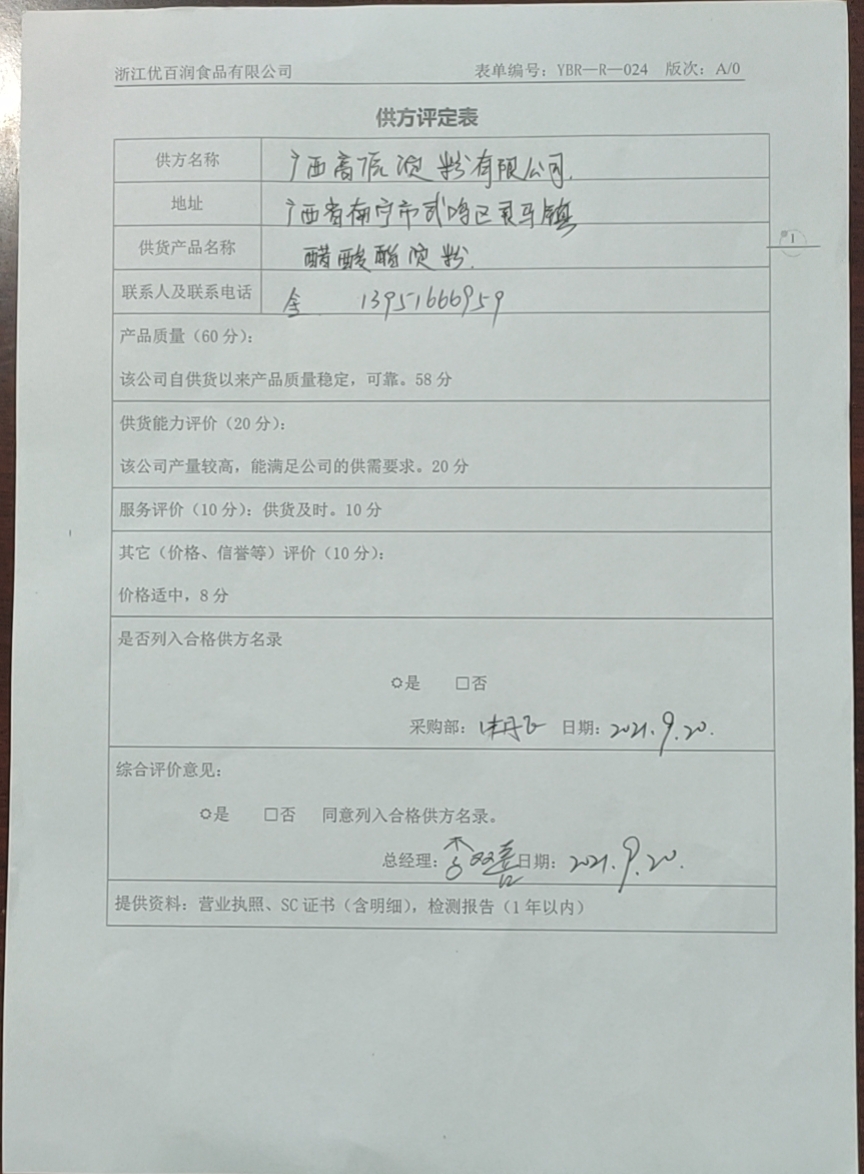 浙江优百润食品有限公司 表单编号：YBR—R—024 版次：A/0
供方评定表
供方名称 广西高源淀粉有限公司.
地址 广西省南宁市武鸣区灵马镇
供货产品名称 醋酸酯淀粉.
联系人及联系电话 金 13951666959
产品质量（60 分）：
该公司自供货以来产品质量稳定，可靠。58 分
供货能力评价（20 分）：
该公司产量较高，能满足公司的供需要求。20 分
服务评价（10 分）：供货及时。10 分
其它（价格、信誉等）评价（10 分）：
价格适中，8 分
是否列入合格供方名录
✩是 □否
采购部： 日期：2021.9.20.
综合评价意见：
✩是 □否 同意列入合格供方名录。
总经理：李双喜 日期：2021.9.20.
提供资料：营业执照、SC 证书（含明细），检测报告（1 年以内）
1